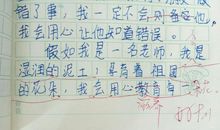 错了事，我一定不会则备它也，
我会用心让他知道错误。
假如我是一名老师，我是
湿润的泥土，孕育着祖国
的花朵，我会用心教育每一朵花
的